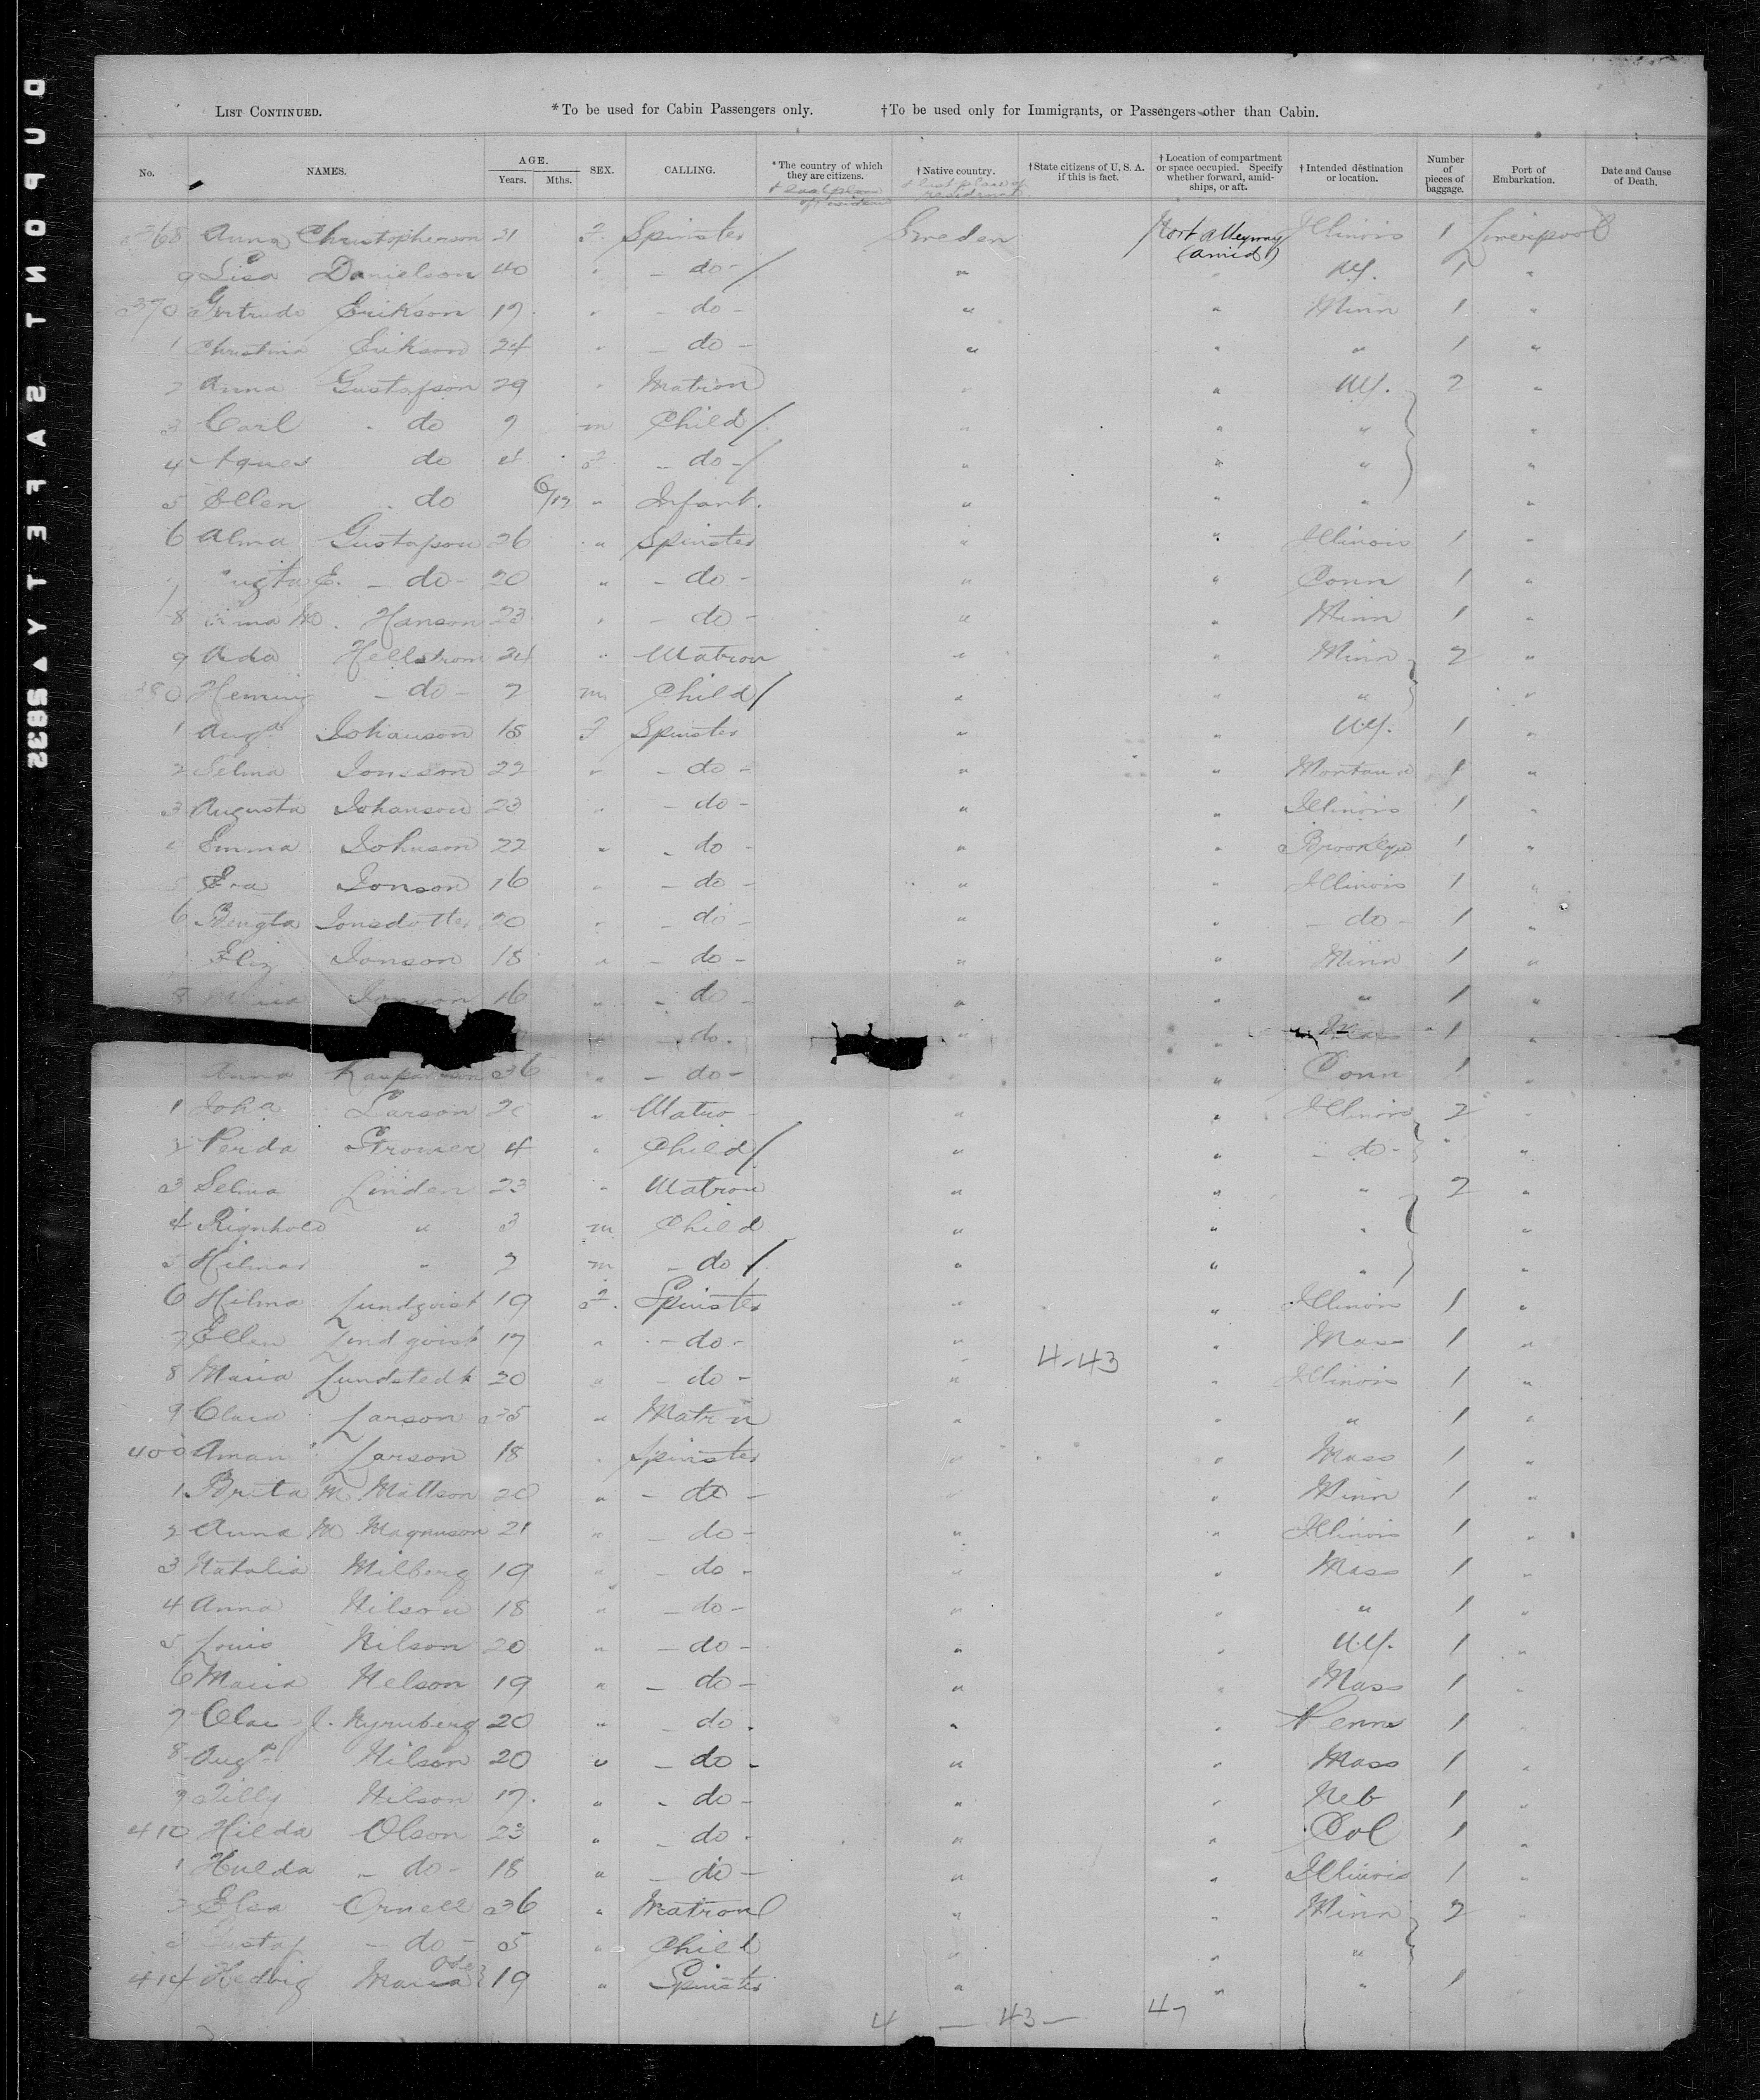 LIST CONTINUED. *To be used for Cabin Passengers only. †To be used only for Immigrants, or Passengers other than Cabin.
No. NAMES. AGE. Years. Mths. SEX. CALLING. *The country of which they are citizens. †Native country. †State citizens of U. S. A. if this is fact. †Location of compartment or space occupied. Specify whether forward, amidships, or aft. †Intended destination or location. Number of pieces of baggage. Port of Embarkation. Date and Cause of Death.
368 Anna Christopherson 31 F. Spinster Sweden Port alleyway (amid) Illinois 1 Liverpool
9 Lisa Danielson 40 " - do - / " " NY. 1 "
370 Gertrude Erikson 19 " - do - " " Minn 1 "
1 Christina Erikson 24 " - do - " " " 1 "
2 Anna Gustafson 29 " Matron " " NY. 2 "
3 Carl do 9 m Child / " " " "
4 Agnes do 4 F - do - / " " " "
5 Ellen do 6/12 " Infant. " " " "
6 Alma Gustafson 26 " Spinster " " Illinois 1 "
E. - do - 20 " - do - " " Conn 1 "
8 M. Hanson 23 " - do - " " Minn 1 "
9 Ada Hellstrom 34 " Matron " " Minn 2 "
380 Heming - do - 7 m Child / " " " "
1 Auga Johanson 18 F Spinster " " NY. 1 "
2 Selma Jonsson 22 " - do - " " Montana 1 "
3 Augusta Johanson 23 " - do - " " Illinois 1 "
Emma Johnson 22 " - do - " " Brooklyn 1 "
5 Eva Jonson 16 " - do - " " Illinois 1 "
6 Bengta Jonsdotter 20 " - do - " " - do - 1 "
Eliz Jonson 18 " - do - " " Minn 1 "
8 16 " - do - " " " 1 "
" - do. " " 1 "
Anna 36 " - do - " Conn 1 "
1 Larson " " " Illinois 2 "
Gerda Stromer 4 " Child / " " - do - " "
3 Selma Linden 23 " Matron " " " 2 "
4 Reinhold " 3 m Child " " " "
5 Hilmar " 2 m - do / " " " "
6 Hilma Lundqvist 19 F. Spinster " " Illinois 1 "
7 Ellen Lindqvist 17 " - do - " " Mass 1 "
4-43
8 Maria Lundstedt 20 " - do - " " Illinois 1 "
9 Clara Larson 35 " Matron " " " 1 "
400 Larson 18 " Spinster " " Mass 1 "
1 Brita M Mattson 20 " - do - " " Minn 1 "
2 Anna M Magnuson 21 " - do - " " Illinois 1 "
3 Natalia Milberg 19 " - do - " " Mass 1 "
4 Anna Nilson 18 " - do - " " " 1 "
5 Louis Nilson 20 " - do - " " N.Y. 1 "
6 Maria Nelson 19 " - do - " " Mass 1 "
7 J. Nyruberg 20 " - do - " " Penn 1 "
8 Auga Nilson 20 " - do - " " Mass 1 "
9 Tilly Nilson 17. " - do - " " Neb 1 "
410 Hilda Olson 23 " - do - " " Col 1 "
1 Hulda - do - 18 " - do - " " Illinois 1 "
2 Elsa Ornell 36 " Matron " " Minn 2 "
3 Gustaf - do - 5 " Child " " " "
414 Hedvig Maria 19 " Spinster " " " 1 "
4 - 43 - 47
DUPONT SAFETY